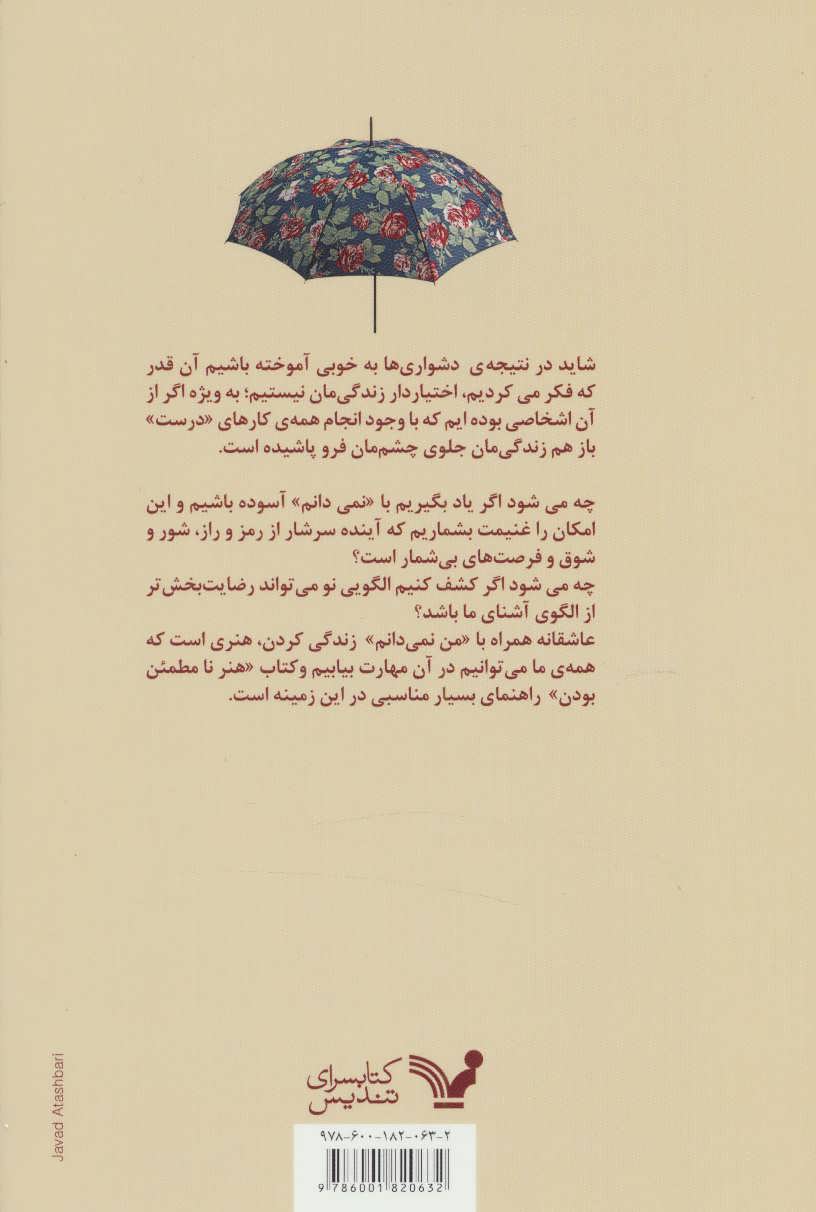 شاید در نتیجه‌ی دشواری‌ها به خوبی آموخته باشیم آن قدر
که فکر می کردیم، اختیاردار زندگی‌مان نیستیم؛ به ویژه اگر از
آن اشخاصی بوده ایم که با وجود انجام همه‌ی کارهای «درست»
باز هم زندگی‌مان جلوی چشم‌مان فرو پاشیده است.
چه می شود اگر یاد بگیریم با «نمی دانم» آسوده باشیم و این
امکان را غنیمت بشماریم که آینده سرشار از رمز و راز، شور و
شوق و فرصت‌های بی‌شمار است؟
چه می شود اگر کشف کنیم الگویی نو می‌تواند رضایت‌بخش‌تر
از الگوی آشنای ما باشد؟
عاشقانه همراه با «من نمی‌دانم» زندگی کردن، هنری است که
همه‌ی ما می‌توانیم در آن مهارت بیابیم وکتاب «هنر نا مطمئن
بودن» راهنمای بسیار مناسبی در این زمینه است.
کتابسرای
تندیس
۹۷۸-۶۰۰-۱۸۲-۰۶۳-۲
9 786001 820632
Javad Atashbari